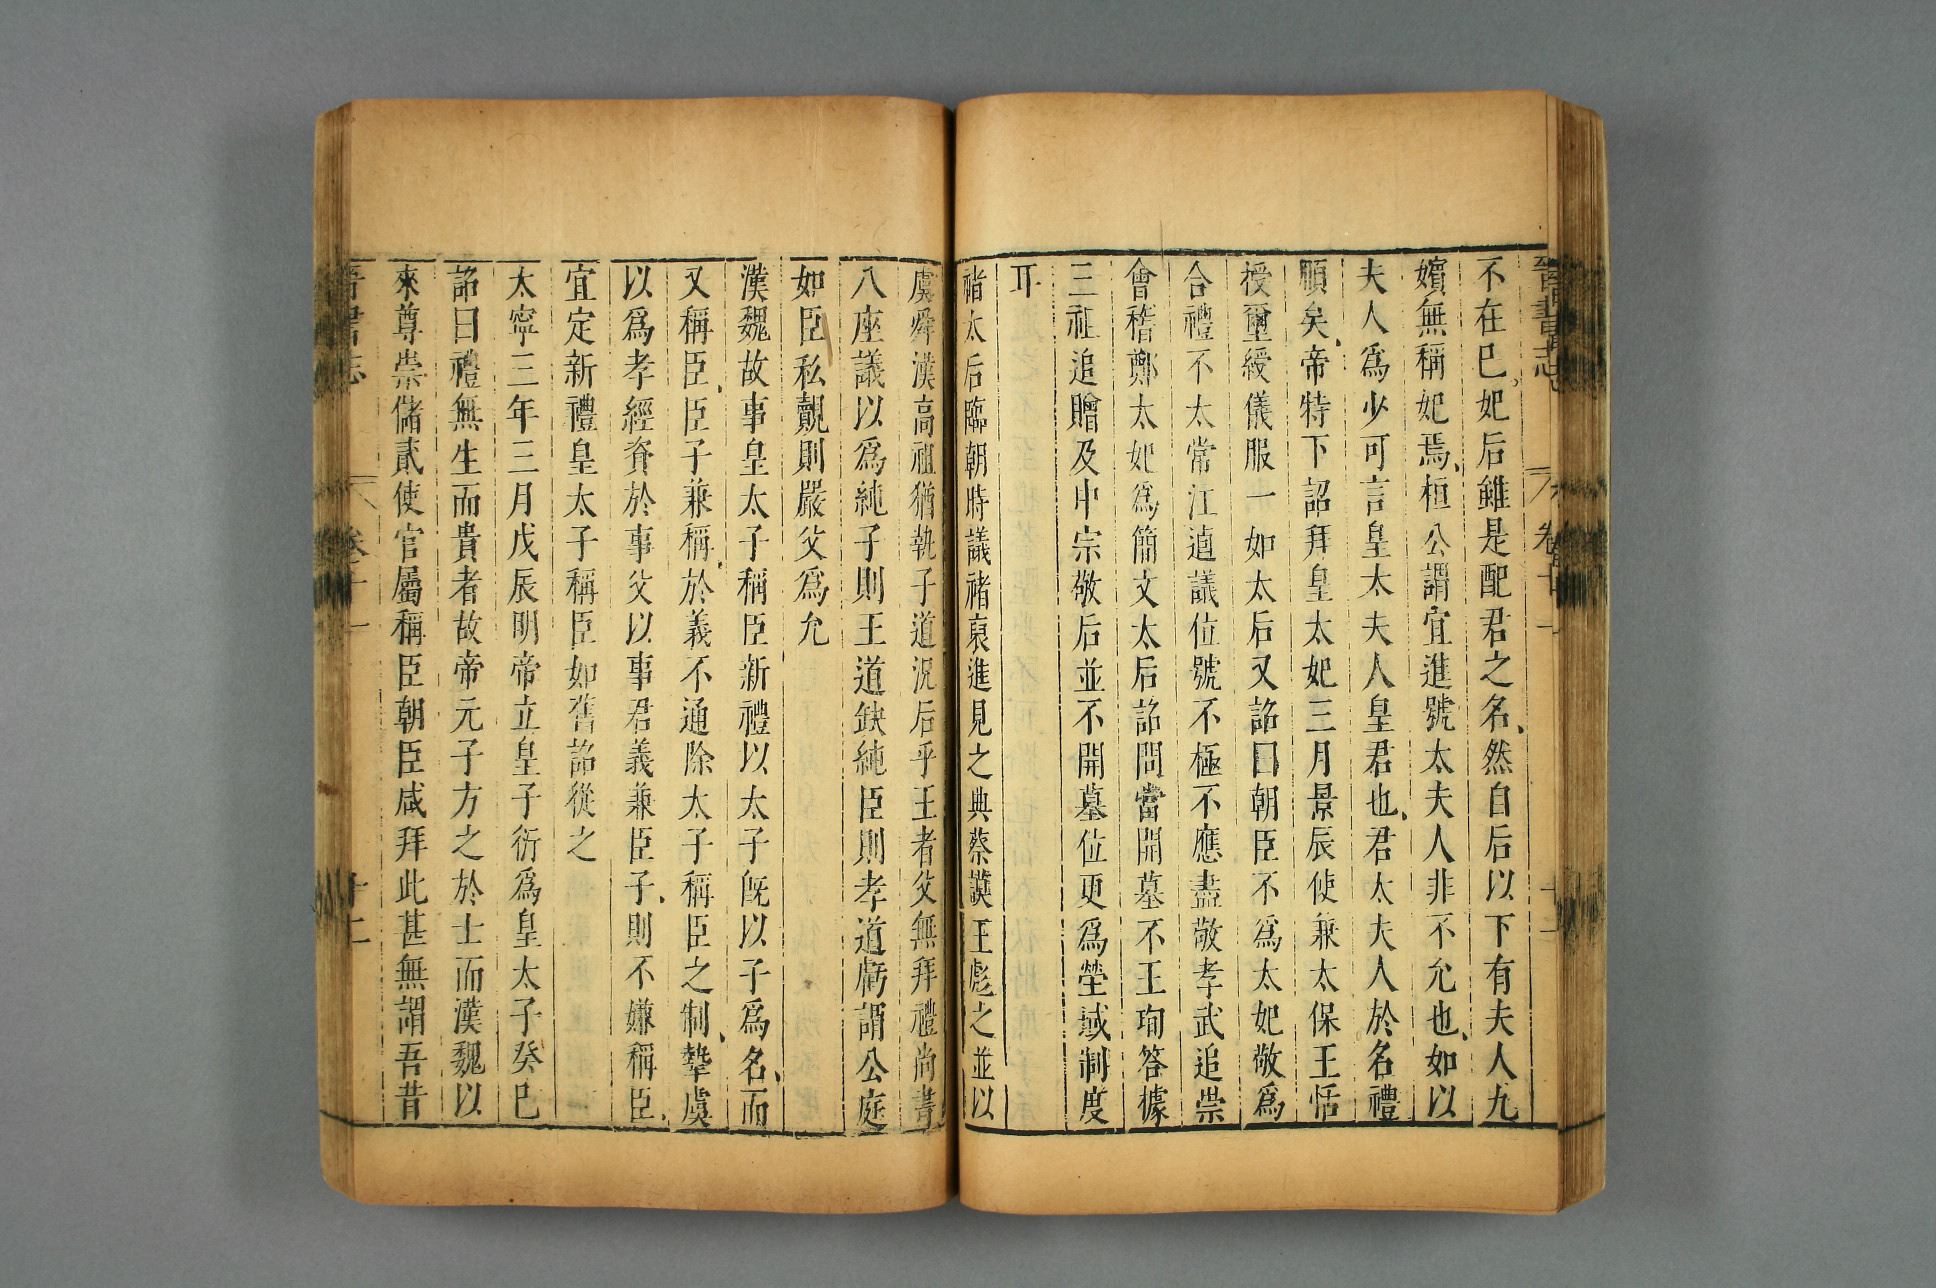 晉書志
卷十一
十二
不在已妃后雖是配君之名然自后以下有夫人九
嬪無稱妃焉桓公謂宜進號太夫人非不允也如以
夫人爲少可言皇太夫人皇君也君太夫人於名禮
順矣帝特下詔拜皇太妃三月景辰使兼太保王恬
授璽綬儀服一如太后又詔曰朝臣不爲太妃敬爲
合禮不太常江逌議位號不極不應盡敬孝武追崇
會稽鄭太妃爲簡文太后詔問當開墓不王珣答據
三祖追贈及中宗敬后並不開墓位更爲塋域制度
耳
褚太后臨朝時議褚裒進見之典蔡謨王彪之並以
虞舜漢高祖猶執子道況后乎王者父無拜禮尚書
八座議以爲純子則王道缺純臣則孝道虧謂公庭
如臣私覿則嚴父爲允
漢魏故事皇太子稱臣新禮以太子旣以子爲名而
又稱臣臣子兼稱於義不通除太子稱臣之制摯虞
以爲孝經資於事父以事君義兼臣子則不嫌稱臣
宜定新禮皇太子稱臣如舊詔從之
太寧三年三月戊辰明帝立皇子衍爲皇太子癸巳
詔曰禮無生而貴者故帝元子方之於士而漢魏以
來尊崇儲貳使官屬稱臣朝臣咸拜此甚無謂吾昔
晉書志
卷十一
十二